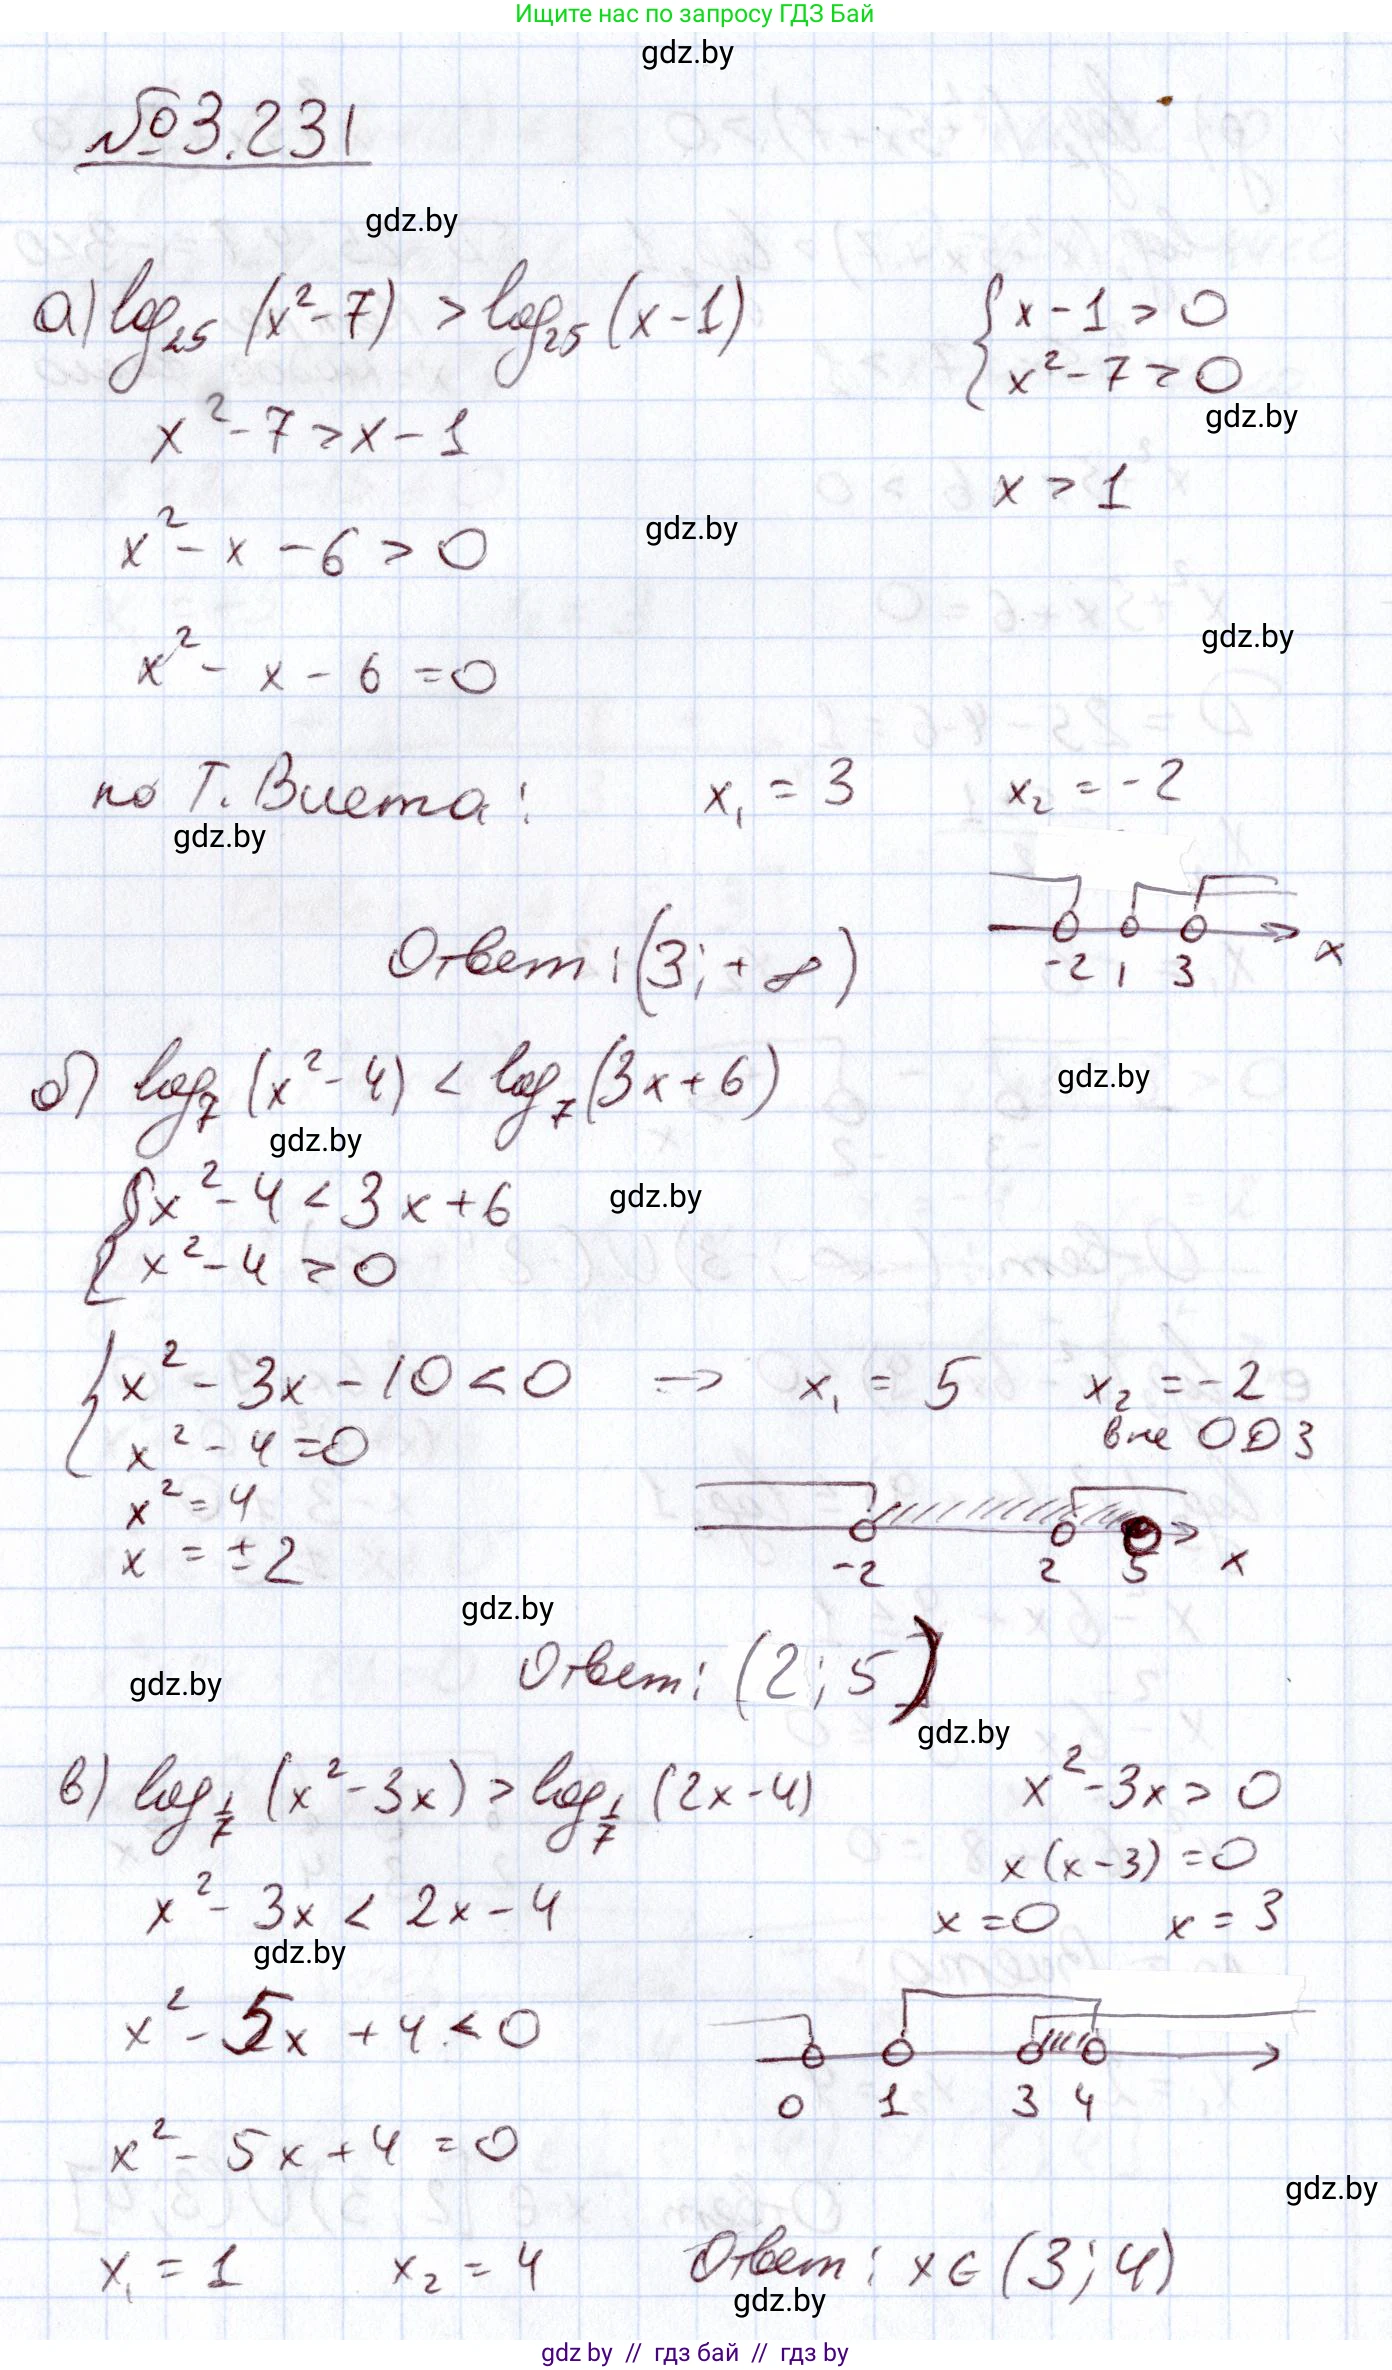 Ищите нас по запросу ГДЗ Бай
gdz.by
№3.231
gdz.by
а) log₂₅ (x² - 7) > log₂₅ (x - 1)
{ x - 1 > 0
x² - 7 > 0
gdz.by
x² - 7 > x - 1
x > 1
gdz.by
x² - x - 6 > 0
gdz.by
x² - x - 6 = 0
по Т. Виета: x₁ = 3 x₂ = -2
gdz.by
-2 1 3 x
Ответ: (3; +∞)
б) log₇ (x² - 4) < log₇ (3x + 6)
gdz.by
gdz.by
{ x² - 4 < 3x + 6
x² - 4 > 0
gdz.by
{ x² - 3x - 10 < 0 → x₁ = 5 x₂ = -2
x² - 4 = 0
вне ОДЗ
x² = 4
x = ±2
-2 2 5 x
gdz.by
Ответ: (2; 5)
gdz.by
gdz.by
в) log_{1/7} (x² - 3x) > log_{1/7} (2x - 4)
x² - 3x > 0
x(x - 3) = 0
x² - 3x < 2x - 4
x = 0 x = 3
gdz.by
x² - 5x + 4 < 0
0 1 3 4
x² - 5x + 4 = 0
gdz.by
x₁ = 1 x₂ = 4
Ответ: x ∈ (3; 4)
gdz.by
gdz by // гдз бай // гдз by